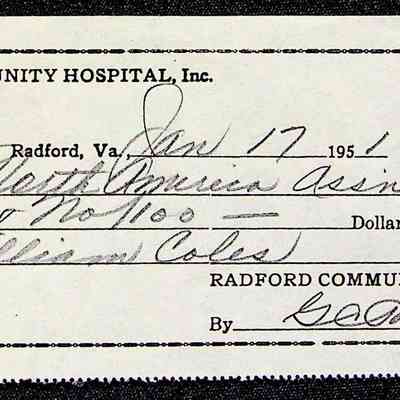 UNITY HOSPITAL, Inc.
Radford, Va., Jan 17 1951
North America Assn
No/100 — Dollar
illiam Coles
RADFORD COMMU
By